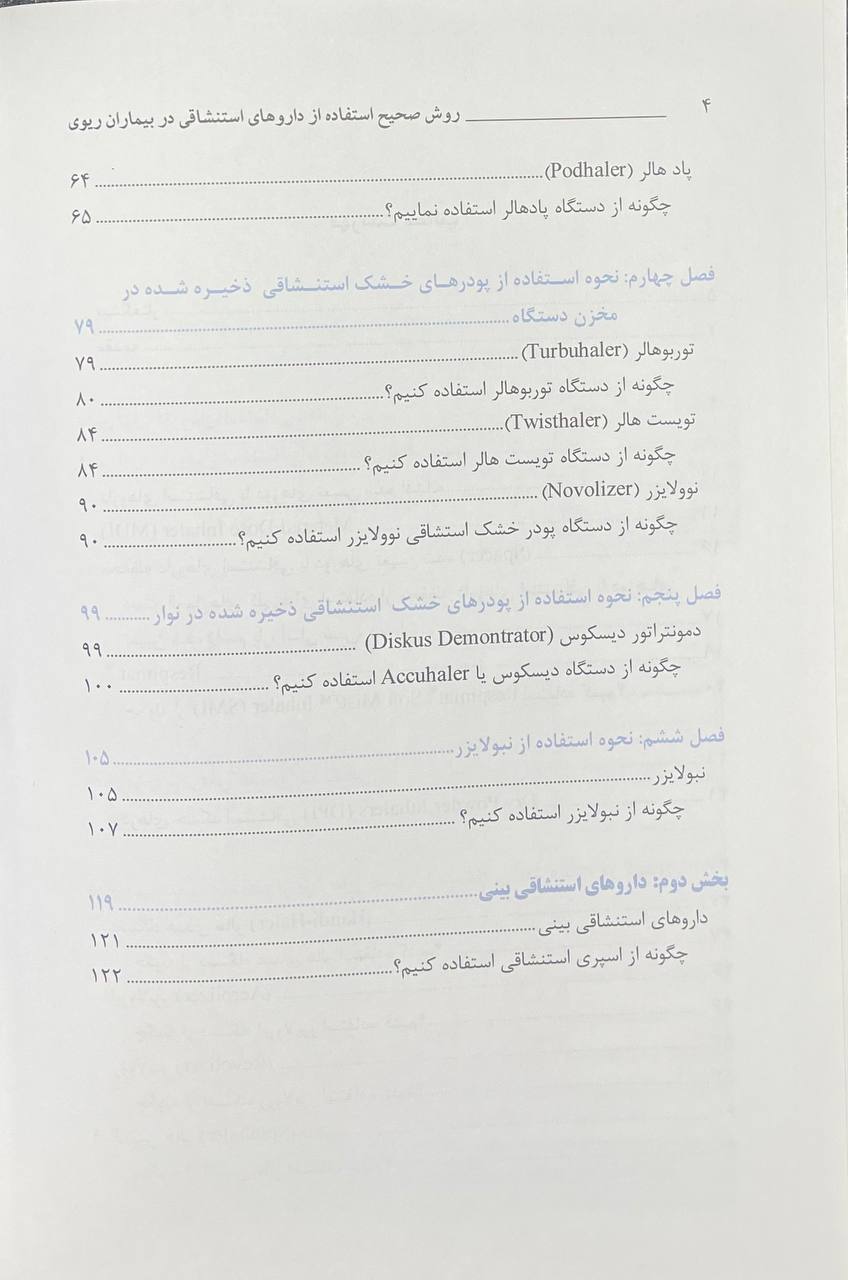 ۴ روش صحیح استفاده از داروهای استنشاقی در بیماران ریوی
پاد هالر (Podhaler) ۶۴
چگونه از دستگاه پادهالر استفاده نماییم؟ ۶۵
فصل چهارم: نحوه استفاده از پودرهای خشک استنشاقی ذخیره شده در
مخزن دستگاه ۷۹
توربوهالر (Turbuhaler) ۷۹
چگونه از دستگاه توربوهالر استفاده کنیم؟ ۸۰
تویست هالر (Twisthaler) ۸۴
چگونه از دستگاه تویست هالر استفاده کنیم؟ ۸۴
نوولایزر (Novolizer) ۹۰
چگونه از دستگاه پودر خشک استنشاقی نوولایزر استفاده کنیم؟ ۹۰
فصل پنجم: نحوه استفاده از پودرهای خشک استنشاقی ذخیره شده در نوار ۹۹
دمونتراتور دیسکوس (Diskus Demontrator) ۹۹
چگونه از دستگاه دیسکوس یا Accuhaler استفاده کنیم؟ ۱۰۰
فصل ششم: نحوه استفاده از نبولایزر ۱۰۵
نبولایزر ۱۰۵
چگونه از نبولایزر استفاده کنیم؟ ۱۰۷
بخش دوم: داروهای استنشاقی بینی ۱۱۹
داروهای استنشاقی بینی ۱۲۱
چگونه از اسپری استنشاقی استفاده کنیم؟ ۱۲۲